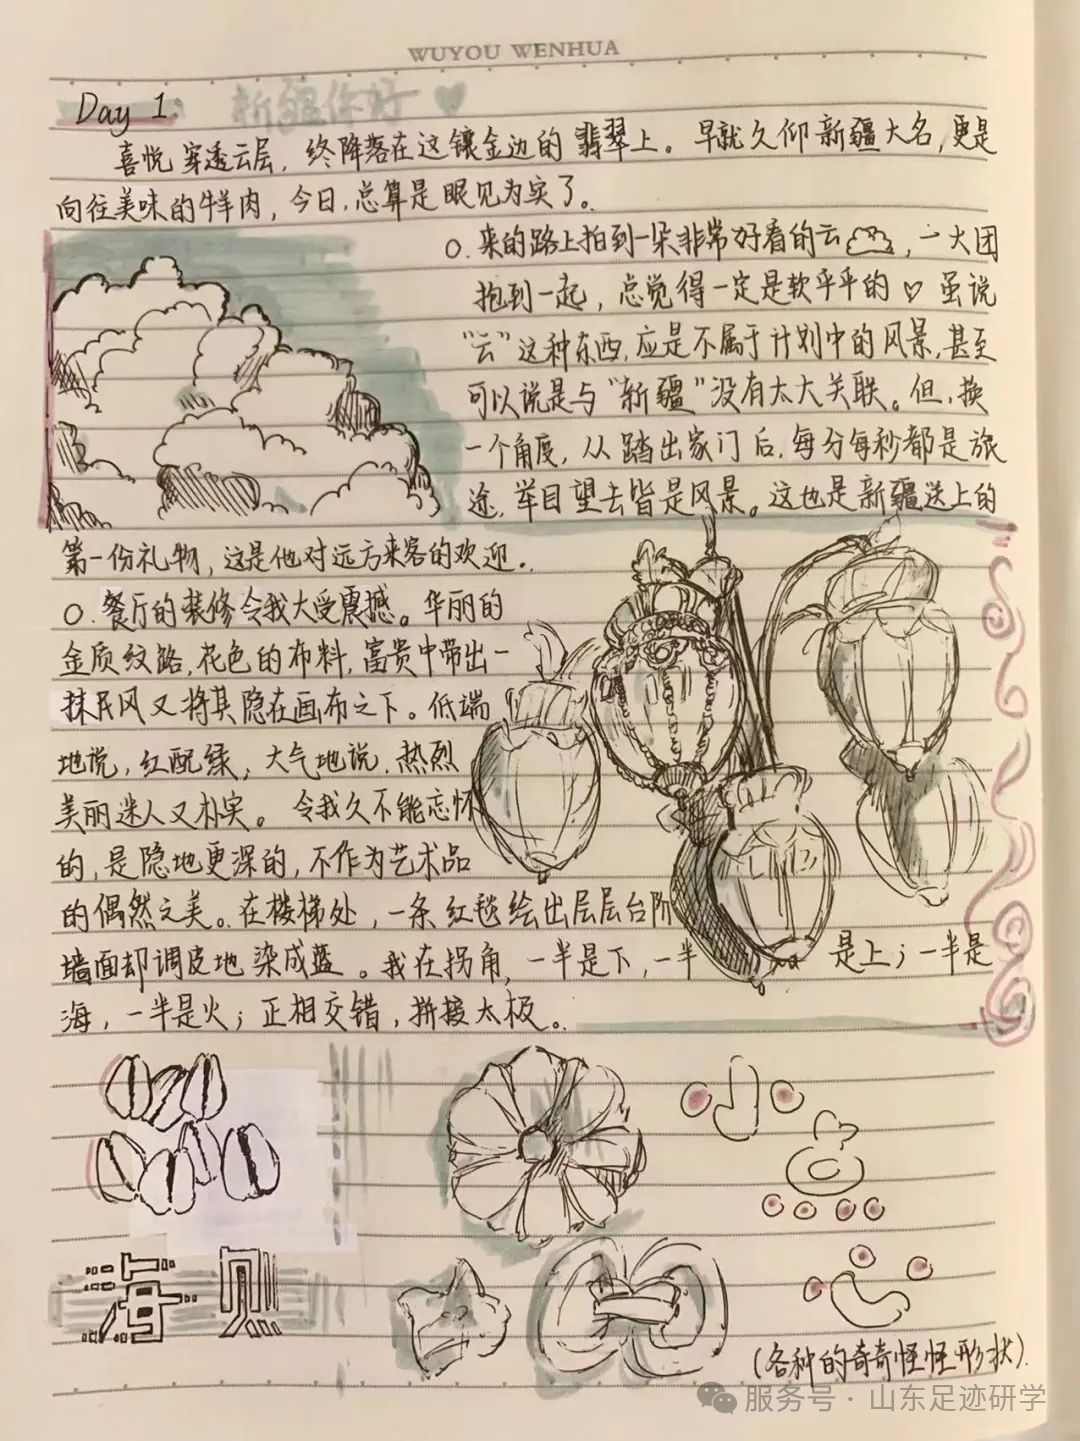 WUYOU WENHUA
Day 1: 新疆你好
喜悦穿透云层，终降落在这镶金边的翡翠上。早就久仰新疆大名，更是
向往美味的牛羊肉，今日，总算是眼见为实了。
O.来的路上拍到一朵非常好看的云，一大团
抱到一起，总觉得一定是软乎乎的♡虽说
“云”这种东西，应是不属于计划中的风景，甚至
可以说是与“新疆”没有太大关联。但，换
一个角度，从踏出家门后，每分每秒都是旅
途，举目望去皆是风景。这也是新疆送上的
第一份礼物，这是他对远方来客的欢迎。
O.餐厅的装修令我大受震撼。华丽的
金质纹路，花色的布料，富贵中带出一
抹民风又将其隐在画布之下。低端
地说，红配绿，大气地说，热烈
美丽迷人又朴实。令我久不能忘怀
的，是隐地更深的，不作为艺术品
的偶然之美。在楼梯处，一条红毯绘出层层台阶
墙面却调皮地染成蓝。我在拐角，一半是下，一半是上；一半是
海，一半是火；正相交错，拼接太极。
小
心
海 则
(各种的奇奇怪怪形状)
服务号·山东足迹研学